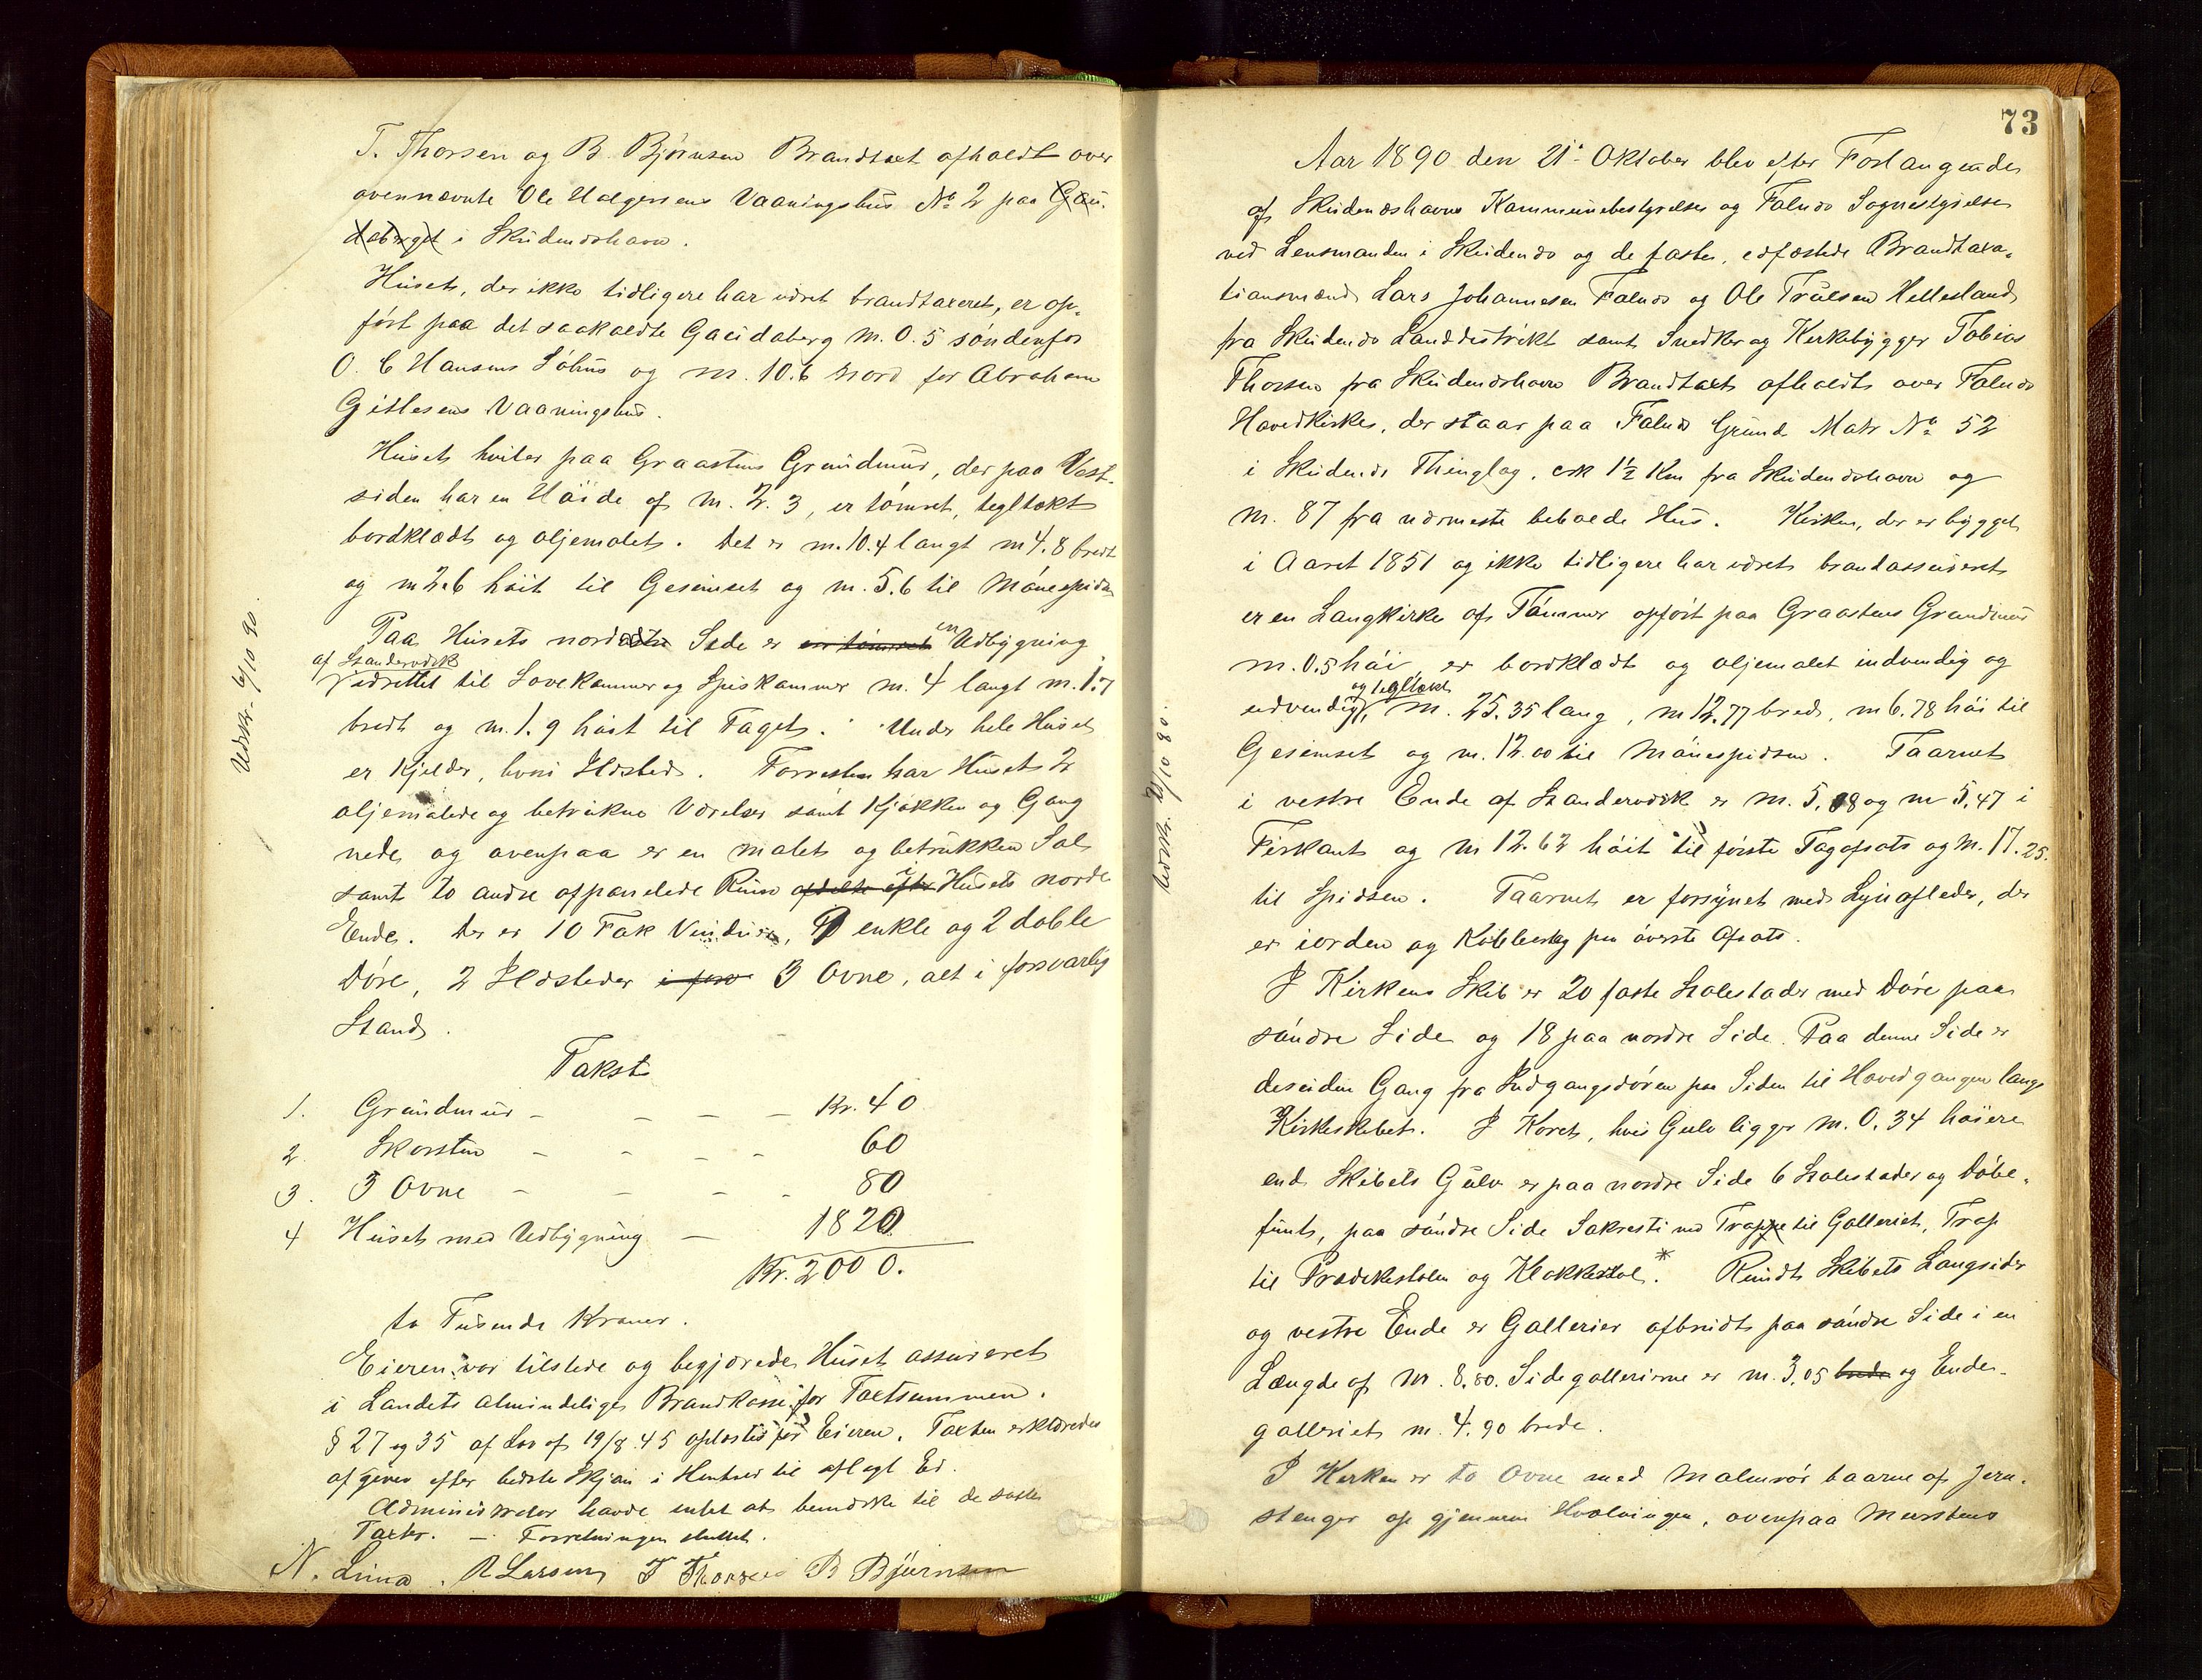 T. Thorsen og B. Björnsen Brandtaxt afholdt over
ovennævnte Ole Helgesens Vaaningshus No 2 paa Gau-
daberget i Skudeneshavn.
Huset, der ikke tidligere har været brandtaxeret, er op-
ført paa det saakaldte Gaudaberg m. 0.5 søndenfor
O. C Hansens Søhus og m. 10.6 nord for Abraham
Gitlesens Vaaningshus.
Huset hviler paa Graastens Grundmur, der paa Vest-
siden har en Høide af m. 2.3, er tømret, tegltækt
bordklædt og oljemalet. Det er m. 10.4 langt m 4.8 bredt
og m 2.6 høit til Gesimset og m. 5.6 til Mønespidsen
Paa Husets nordøstre Side er en tømret en Udbygning
af Standerværk
indrettet til Sovekammer og Spiskammer m. 4 langt m. 1.7
bredt og m. 1.9 høit til Taget. Under hele Huset
er Kjelder, hvori Ildsted. Forresten har Huset 2
oljemalede og betrukne Værelser samt Kjøkken og Gang
nede og ovenpaa er en malet og betrukken Sal
samt to andre afpanelede Rum i Husets nordre
Ende. Der er 10 Fak Vinduer, 9 enkle og 2 doble
Døre, 2 Ildsteder i forsv 3 Ovne, alt i forsvarlig
Stand.
Takst
1. Grundmur - - - - Kr. 40
2. Skorsten - - - - 60
3. 3 Ovne - - - - 80
4 Huset med Udbygning - 1820
Kr. 2000.
to Tusende Kroner.
Eieren var tilstede og begjærede Huset assureret
i Landets almindelige Brandkasse for Taxtsummen.
§ 27 og 35 af Lov af 19/8 45 oplæstes for Eieren. Taxten erklæredes
afgiven efter bedste Skjøn i Henhold til aflagt Ed.
Administrator havde intet at bemærke til de satte
Taxter. — Forretningen sluttet.
N. Lima. R Larsen T Thorsen B Björnsen
Udskr. 6/10 90.
73
Aar 1890 den 21de Oktober blev efter Forlangende
af Skudeneshavns Kommunebestyrelse og Falnes Sognestyrelse
ved Lensmanden i Skudenes og de faste, edfæstede Brandtaxa-
tionsmænd Lars Johannesen Falnes og Ole Truesen Hellesland
fra Skudenes Landdistrikt samt Snedker og Kirkebygger Tobias
Thorsen fra Skudeneshavn Brandtaxt afholdt over Falnes
Hovedkirke, der staar paa Falnes Grund Matr No 52
i Skudenes Thinglag, crk 1½ Km fra Skudeneshavn og
m. 87 fra nærmeste beboede Hus. Kirken, der er bygget
i Aaret 1851 og ikke tidligere har været brandassureret
er en Langkirke af Tømmer opført paa Graastens Grundmur
m. 0.5 høi, er bordklædt og oljemalet indvendig og
og tegltækt
udvendig, m. 25.35 lang, m 12.77 bred, m 6.78 høi til
Gesimset og m. 12.00 til Mønespidsen. Taarnet
i vestre Ende af Standerværk er m. 5.08 og m 5.47 i
Firkant og m 12.62 høit til første Tagafsats og m. 17.25.
til Spidsen. Taarnet er forsynet med Lynafleder, der
er iorden og Kobbertag paa øverste Afsats.
I Kirkens Skib er 20 faste Stolestader med Døre paa
søndre Side og 18 paa nordre Side. Paa denne Side er
desuden Gang fra Indgangsdøren paa Siden til Hovedgangen langs
Kirkeskibet. I Koret, hvis Gulv ligger m. 0.34 høiere
end Skibets Gulv er paa nordre Side 6 Stolestader og Døbe-
funt, paa søndre Side Sakresti med Trappe til Galleriet, Trap
til Prædikestolen og Klokkestol.* Rundt Skibets Langsider
og vestre Ende er Gallerier afbrudt paa søndre Side i en
Længde af m. 8.80. Sidegallerierne er m. 3.05 brede og Ende-
galleriet m. 4.90 brede.
I Kirken er to Ovne med Malmrør baarne af Jern-
stænger op gjennem Hvælvingen, ovenpaa Murstens